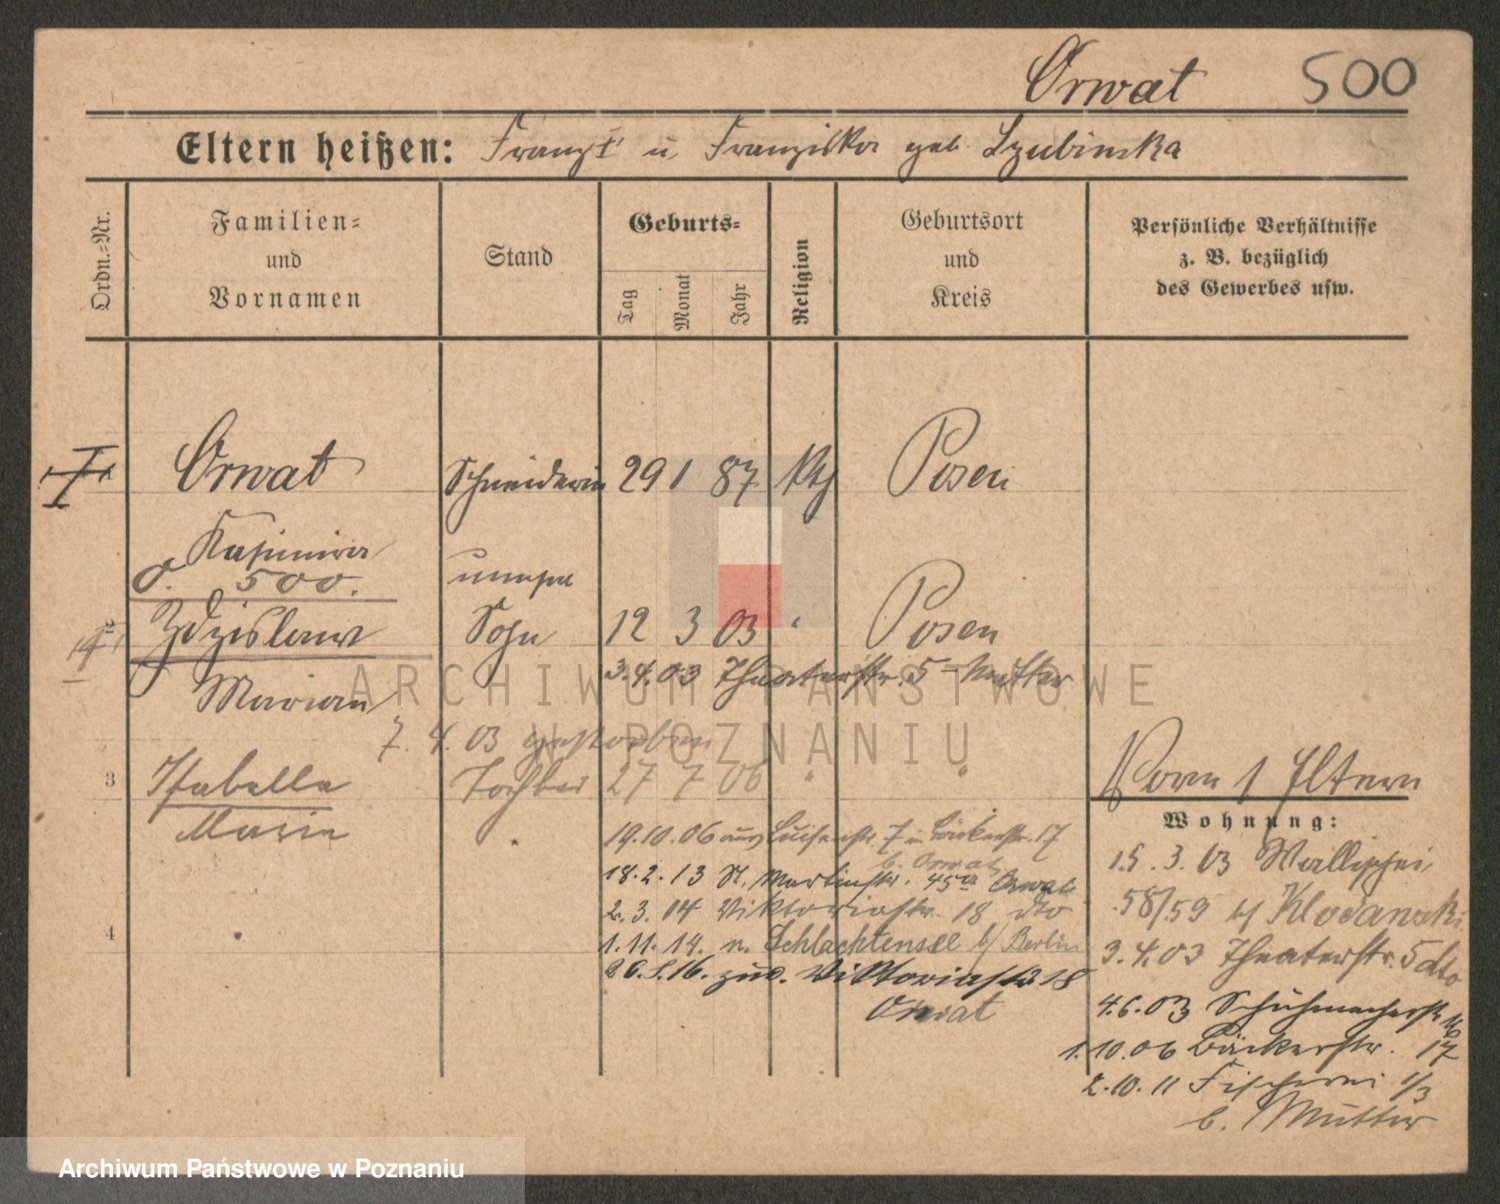 Orwat 500
Eltern heißen: Franz † u. Franziska geb. Szubinska
Ordn.=Nr.
Familien=
und
Vornamen
Stand
Geburts=
Tag
Monat
Jahr
Religion
Geburtsort
und
Kreis
Persönliche Verhältnisse
z. B. bezüglich
des Gewerbes usw.
Orwat Schneiderin 29 1 87 kth Posen
Kasimira
500.
2 Zdzislaw Sohn 12 3 03 " Posen
3.4.03 Theaterstr. 5 Mutter
Marian
7. 4. 03 gestorben
3 Isabella Tochter 27 7 06 " "
Marie
19.10.06 aus Luisenstr. 7 n. Bäckerstr. 17
b. Orwat
18.2.13 St. Martinstr. 45 Orwat
2.3.14 Viktoriastr. 18 dto
4
1.11.14. n. Schlachtensee b/ Berlin
26.5.16. zur. Viktoriastr 18
Orwat
Eltern
Wohnung:
15.3.03 Wallischei
58/59 b/ Klodanski
3.4.03 Theaterstr. 5 dto
4.6.03 Schuhmacherstr 16
1.10.06 Bäckerstr. 17
2.10.11 Fischerei 1/3
b. Mutter
ARCHIWUM PAŃSTWOWE
W POZNANIU
Archiwum Państwowe w Poznaniu